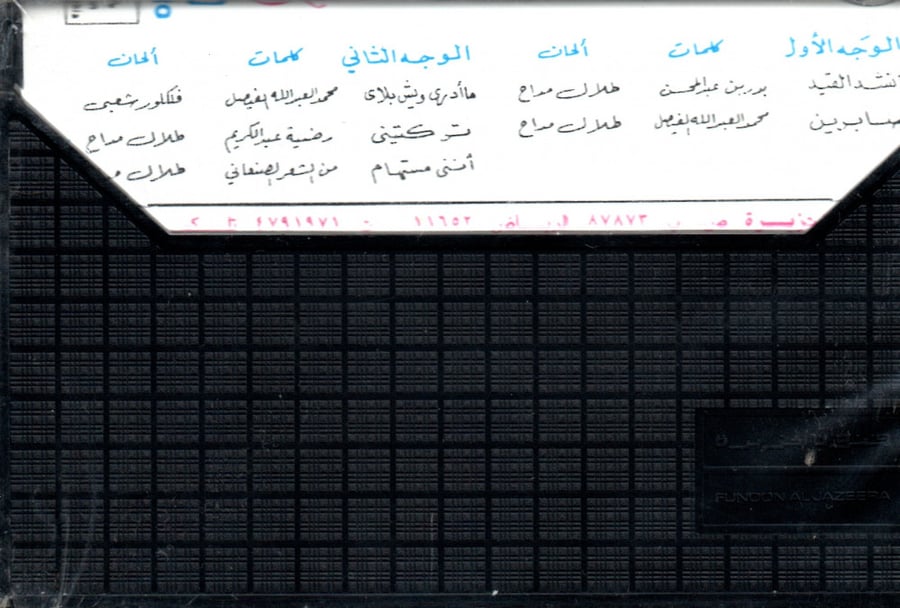 الوجه الأول كلمات ألحان الوجه الثاني كلمات ألحان
نشد القيد بدر بن عبدالمحسن طلال مداح ما أدري ويش بلاي محمد العبدالله الفيصل فلكلور شعبي
صابرين محمد العبدالله الفيصل طلال مداح تركتيني رضية عبدالكريم طلال مداح
أمنتي مستهام من الشعر الصنعاني طلال
٨٧٨٧٣ الرياض ١١٦٥٢ - ٤٧٩١٩٧١
FUNOON AL JAZEERA